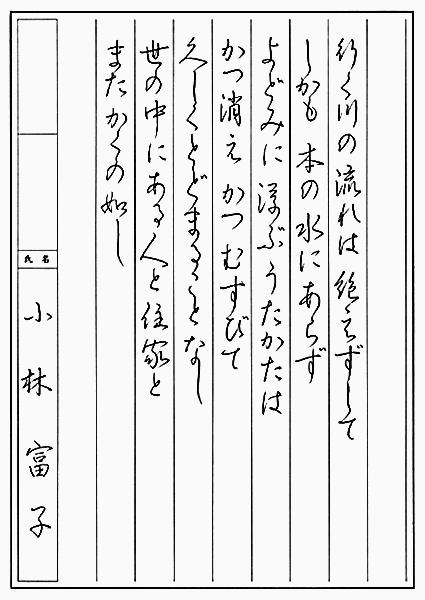 行く川の流れは絶えずして
しかも本の水にあらず
よどみに浮ぶうたかたは
かつ消えかつむすびて
久しくとどまることなし
世の中にある人と住家と
またかくの如し
氏名
小林富子